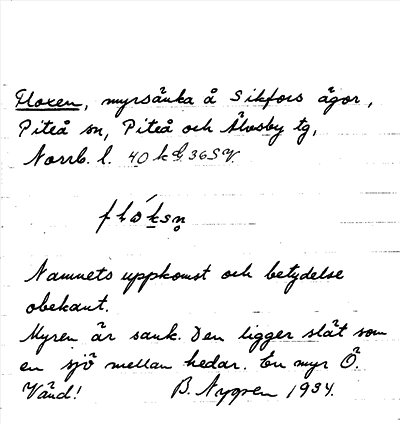 Floxen, myrsänka å Sikfors ägor,
Piteå sn, Piteå och Älvsby tg,
Norrb. l. 40 k 36 SV
flo̊ksn̥
Namnets uppkomst och betydelse
obekant.
Myren är sank. Den ligger slät som
en sjö mellan hedar. En myr Ö.
Vänd! B. Nygren 1934.